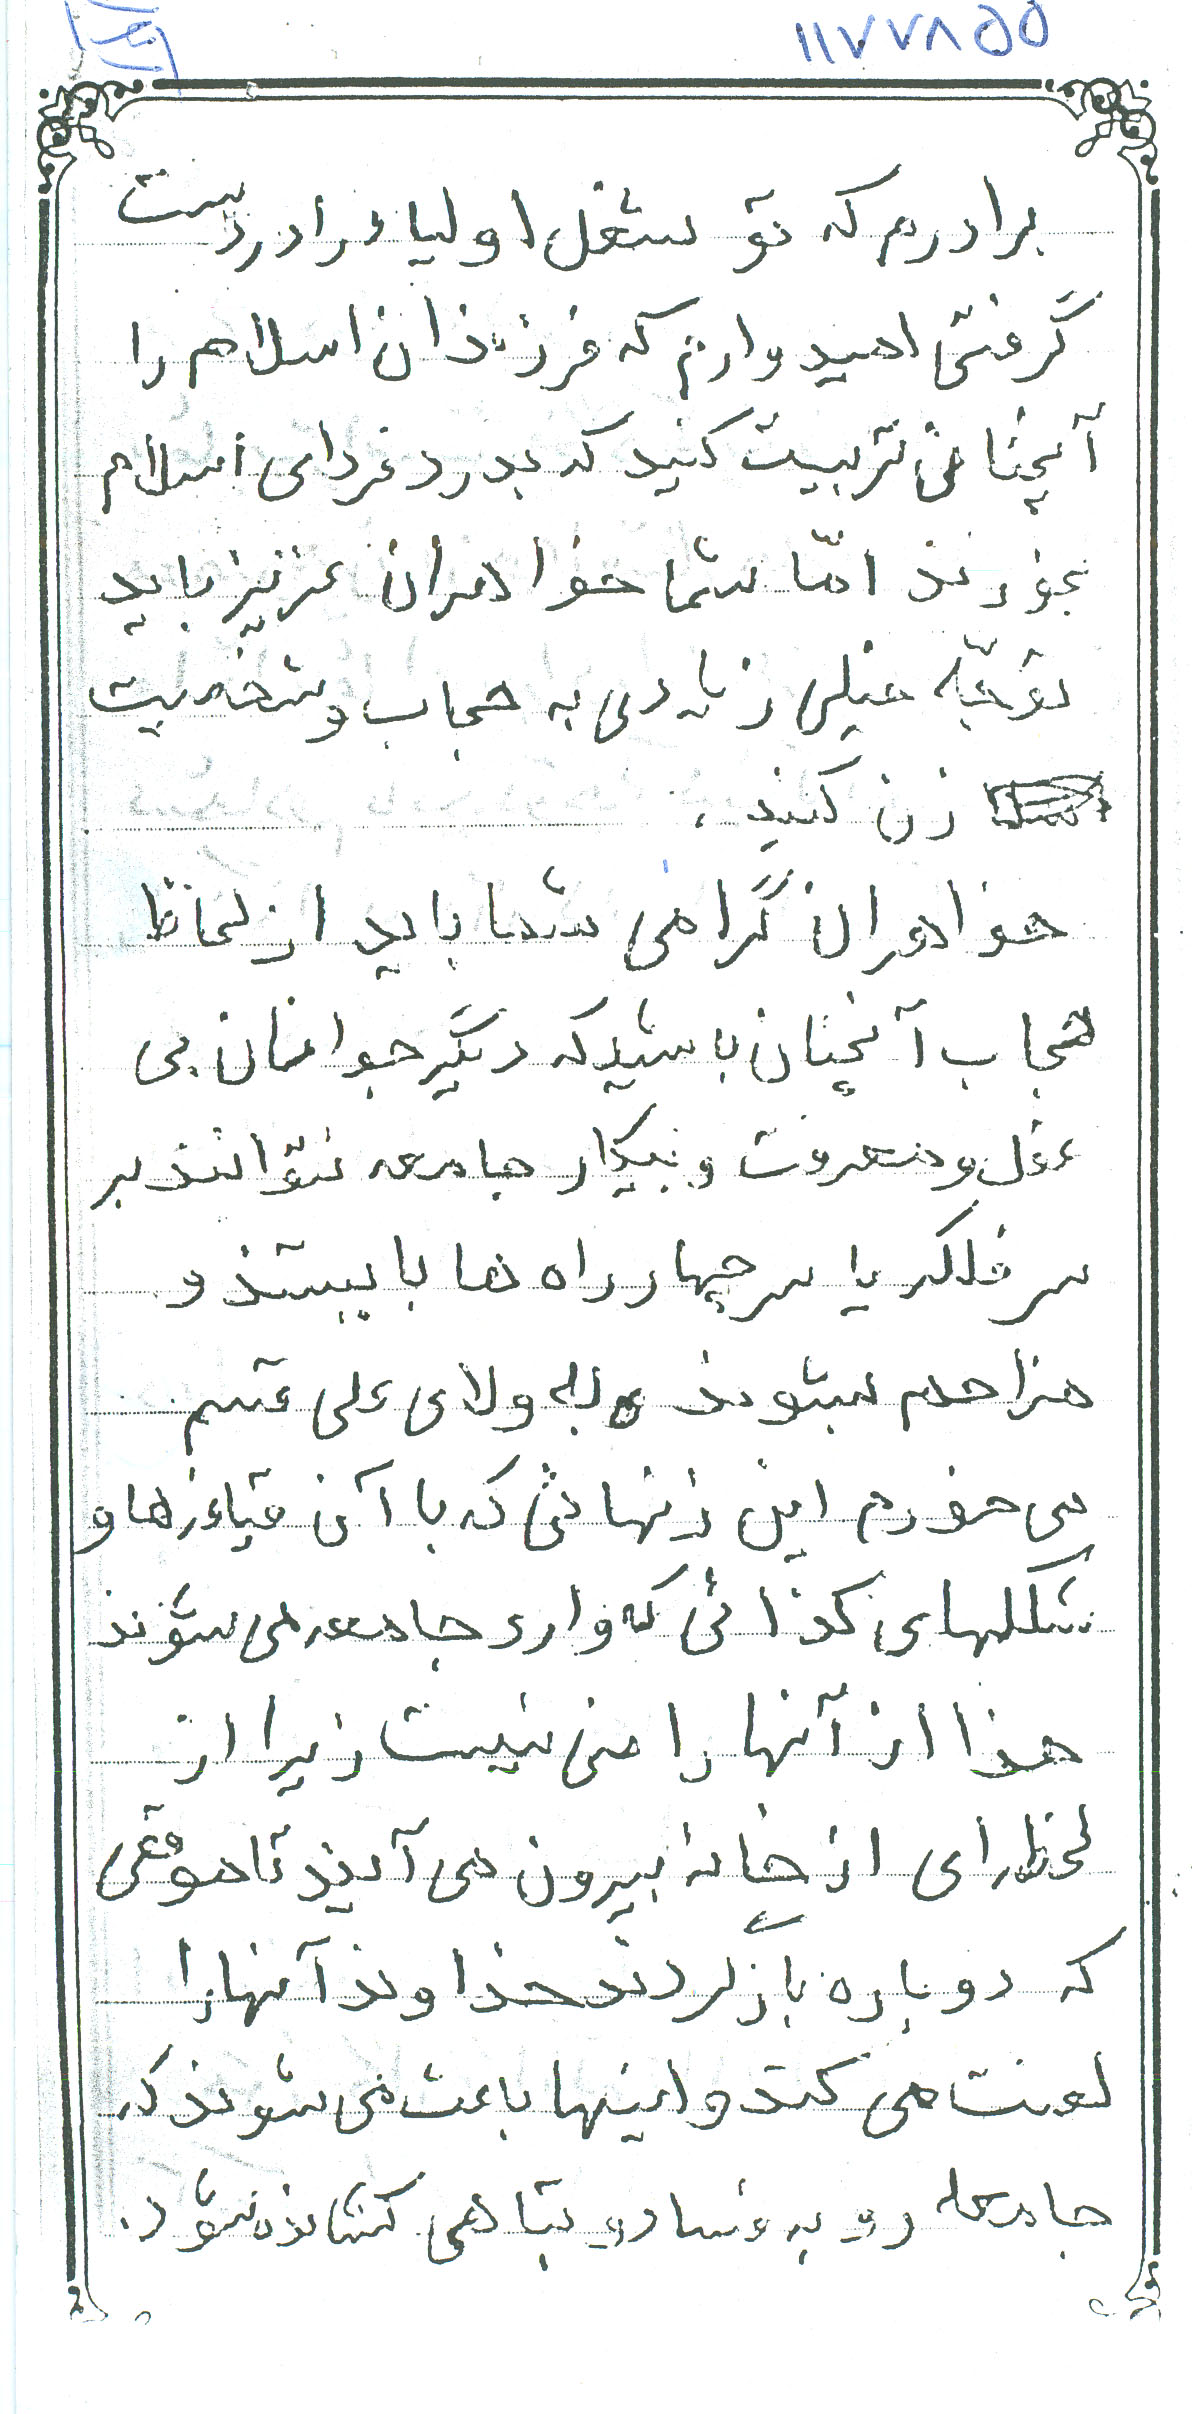 ۱۱۷۷۸۵۵
برادرم که تو شغل اولیاء را در دست
گرفتی امیدوارم که فرزندان اسلام را
آنچنان تربیت کنید که بدرد فردای اسلام
بخورند امّا شما خواهران عزیز باید
توجّه خیلی زیادی به حجاب و شخصیت
زن کنید.
خواهران گرامی شما باید از لحاظ
حجاب آنچنان باشید که دیگر جوانان بی
عقل و معرفت و بیکار جامعه نتوانند بر
سر فلکه یا سر چهار راه ها بایستند و
مزاحم بشوند به ولای علی قسم
می خورم این زنهائی که با آن قیافه ها و
شکلهای کذائی که وارد جامعه می شوند
خدا از آنها راضی نیست زیرا از
لحظه ای از خانه بیرون می آیند تا موقعی
که دوباره بازگردند خداوند آنها را
لعنت می کند و اینها باعث می شوند که
جامعه رو به فساد و تباهی کشانده شود.